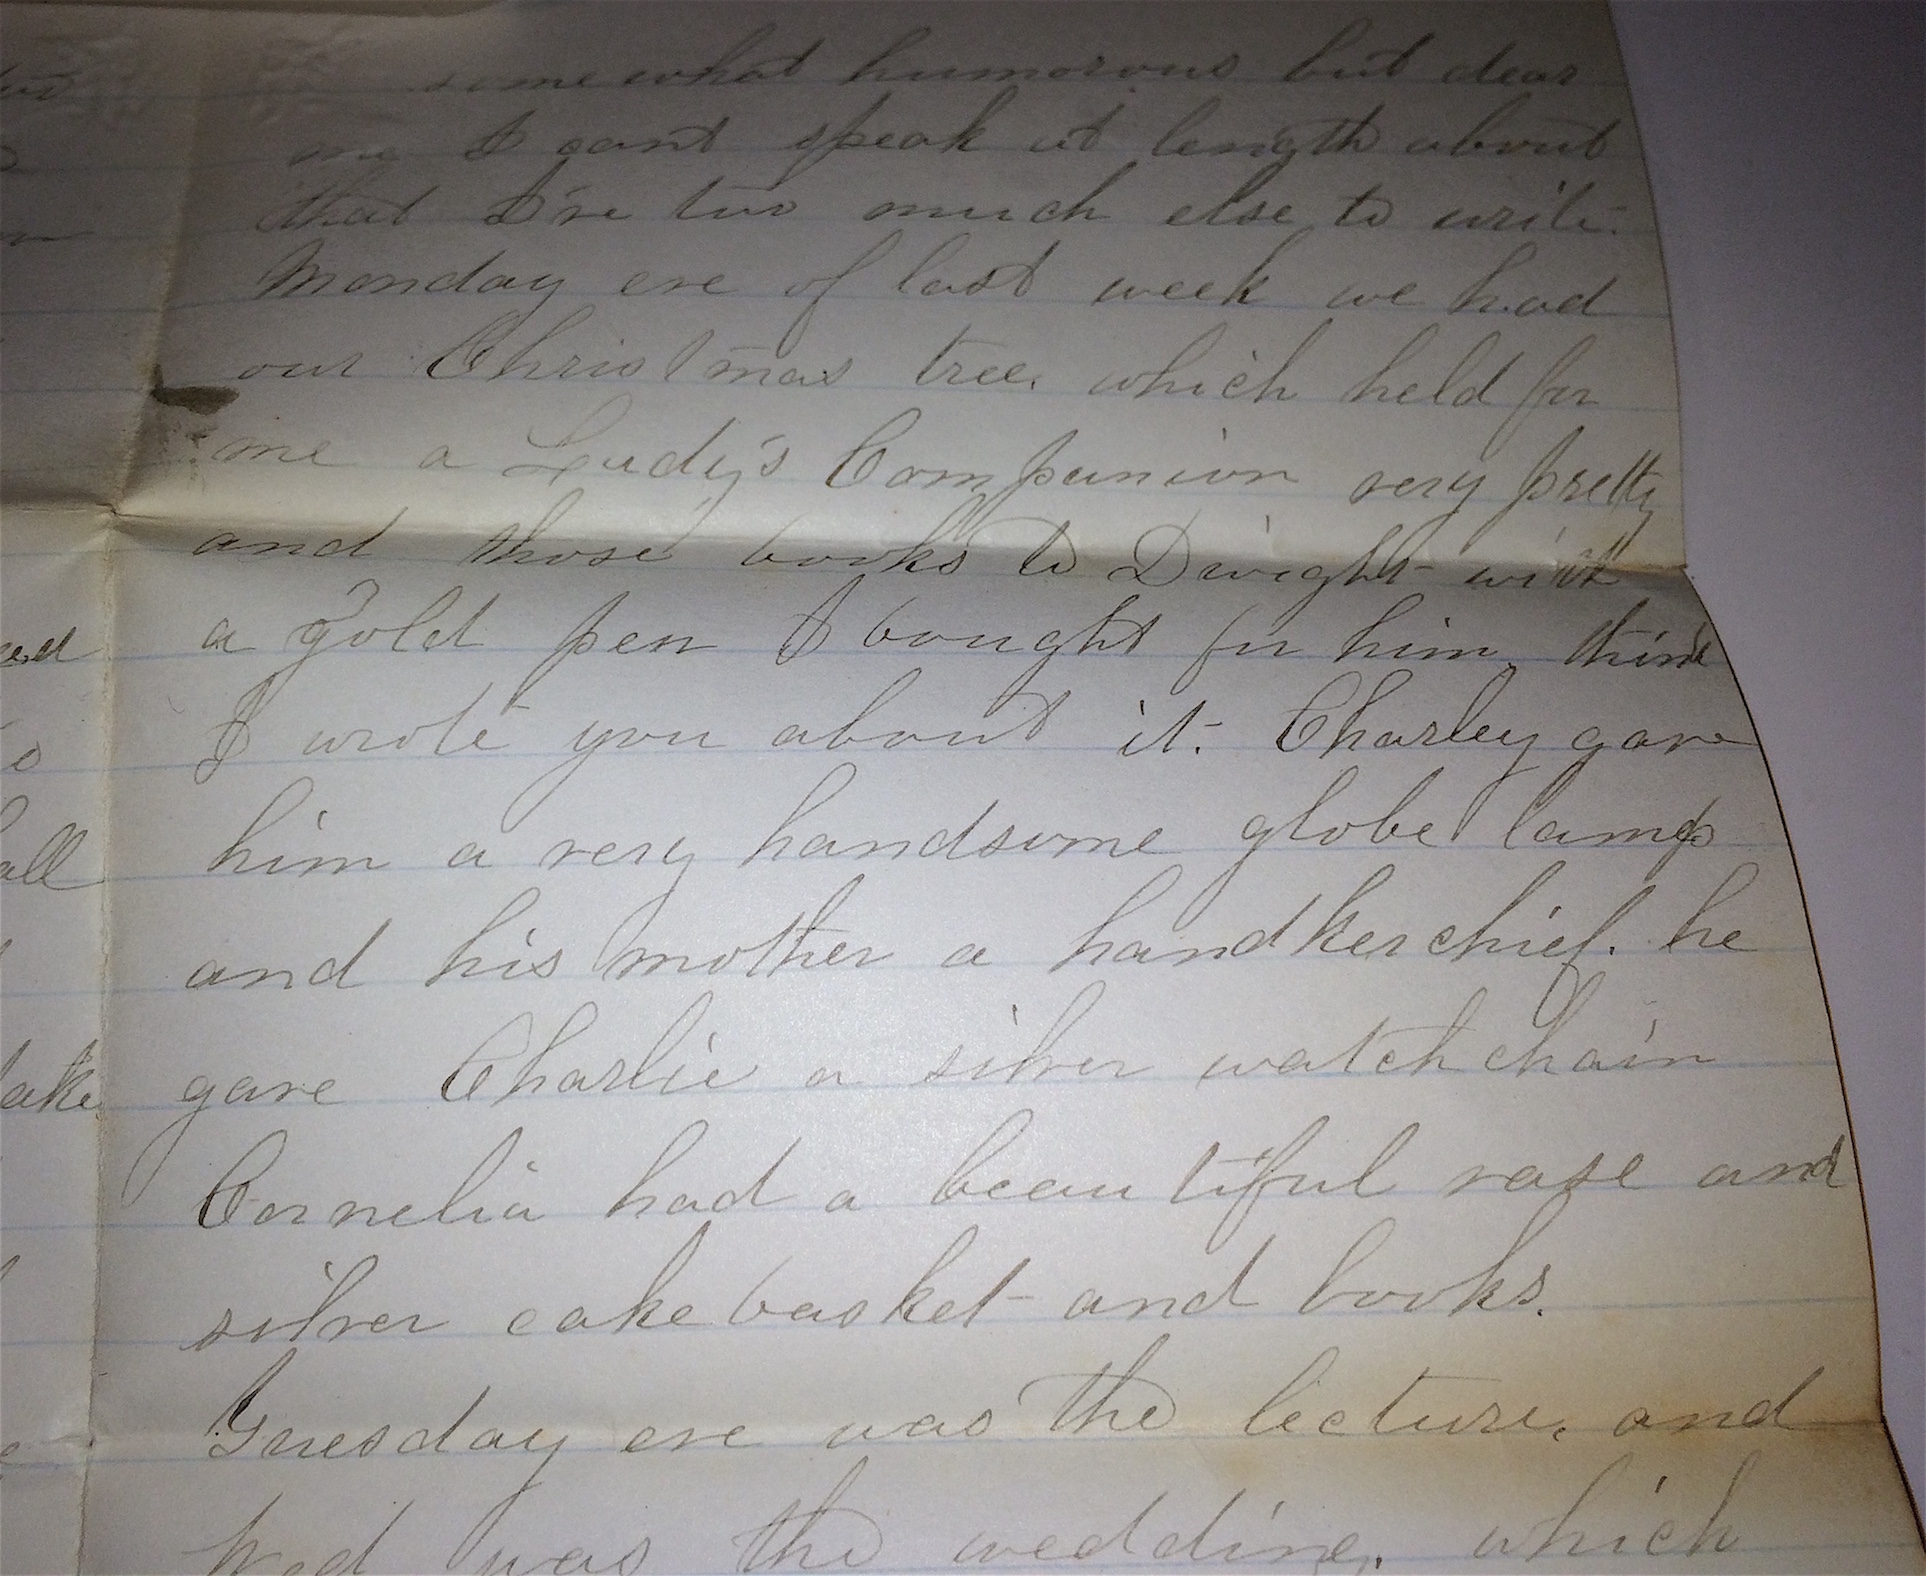 somewhat humorous but dear
me I cant speak at length about
that I've too much else to write.
Monday eve of last week we had
our Christmas tree, which held for
me a Lady's Companion very pretty
and those books to Dwight with
a gold pen I bought for him, think
I wrote you about it. Charley gave
him a very handsome globe lamp
and his mother a handkerchief. he
gave Charlie a silver watch chain
Cornelia had a beautiful vase and
silver cake basket and books.
Tuesday eve was the lecture, and
Wed was the wedding, which
all
lake